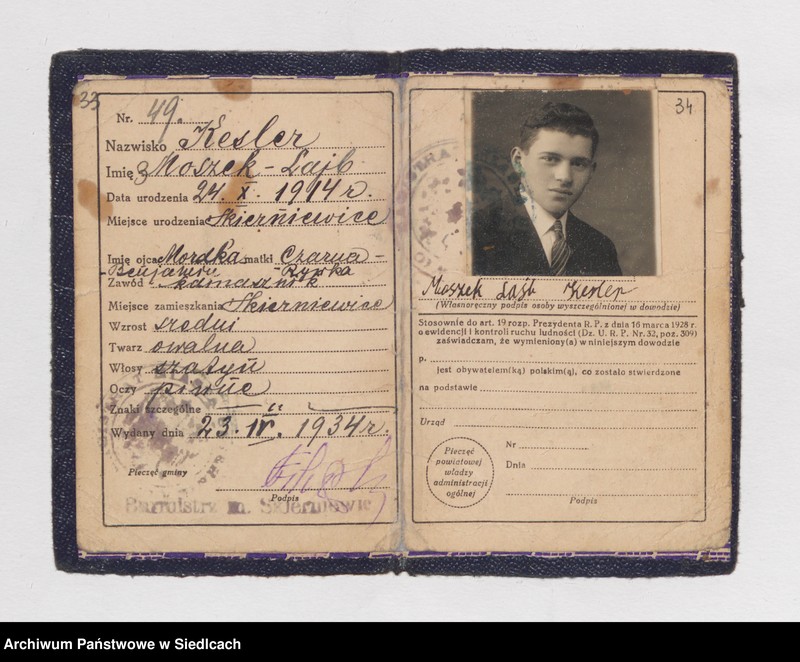 33
Nr. 49.
Nazwisko Kesler
Imię Moszek-Lajb
Data urodzenia 24. X. 1914 r.
Miejsce urodzenia Skierniewice
Imię ojca Mordka matki Czarna-
-Benjamin Rywka
Zawód kamasznik
Miejsce zamieszkania Skierniewice
Wzrost średni
Twarz owalna
Włosy szatyn
Oczy piwne
Znaki szczególne
Wydany dnia 23. IV. 1934 r.
Pieczęć gminy
Podpis
Burmistrz m. Skierniewic
34
Moszek Lajb Kesler
(Własnoręczny podpis osoby wyszczególnionej w dowodzie)
Stosownie do art. 19 rozp. Prezydenta R. P. z dnia 16 marca 1928 r.
o ewidencji i kontroli ruchu ludności (Dz. U. R. P. Nr. 32, poz. 309)
zaświadczam, że wymieniony(a) w niniejszym dowodzie
p.
jest obywatelem(ką) polskim(ą), co zostało stwierdzone
na podstawie
Urząd
Nr
Dnia
Podpis
Pieczęć
powiatowej
władzy
administracji
ogólnej
Archiwum Państwowe w Siedlcach